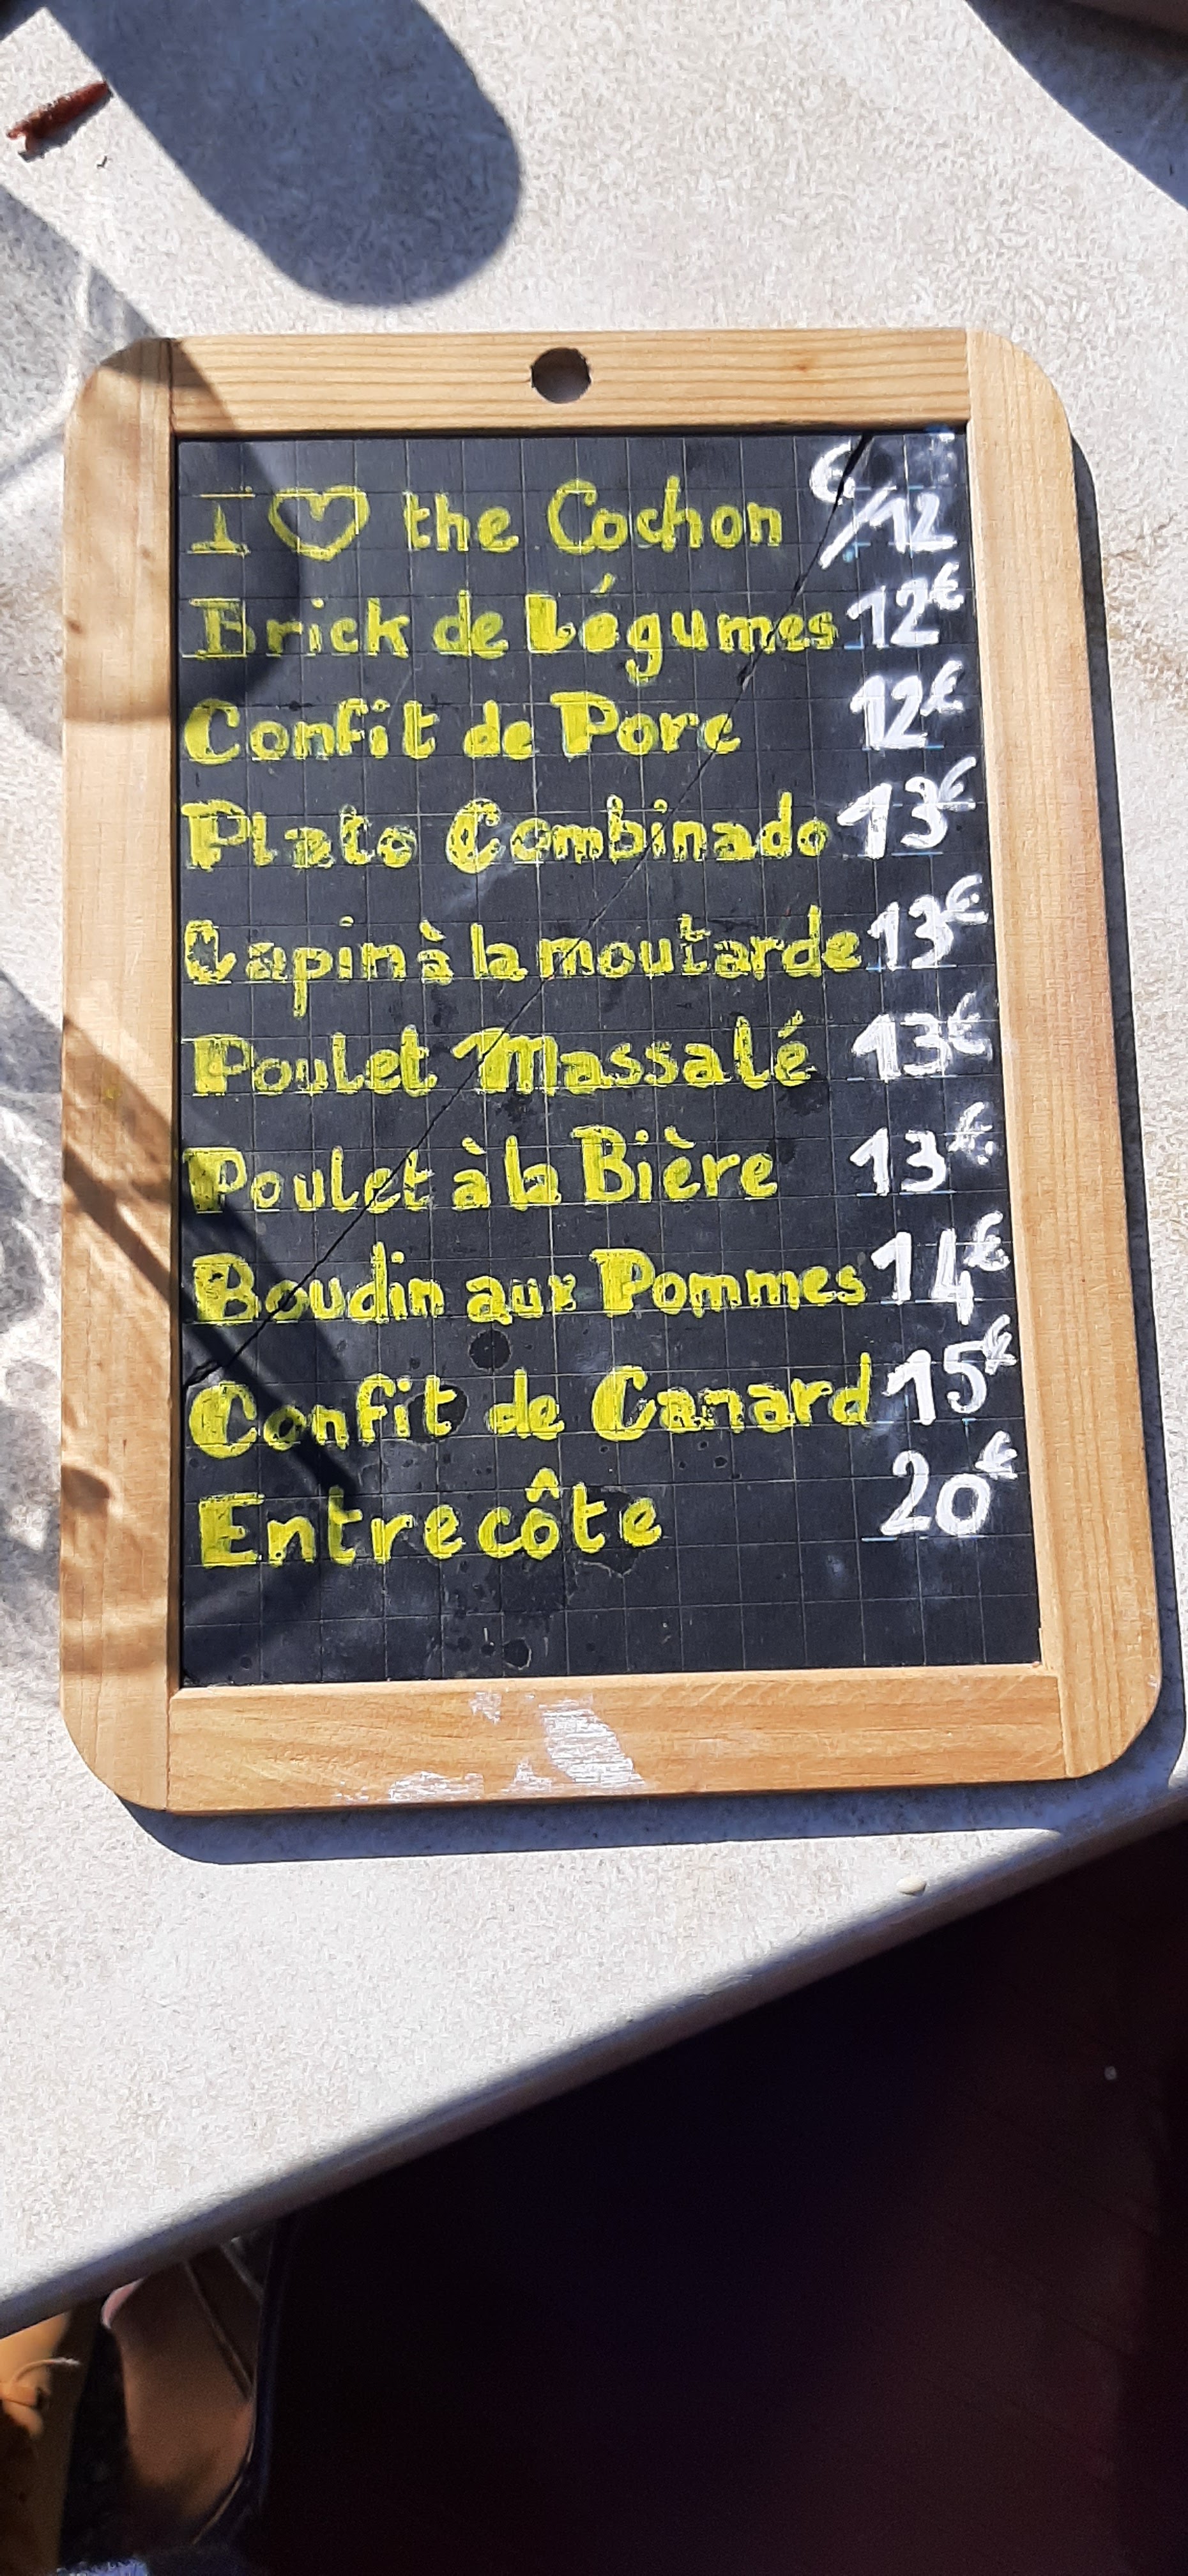 I ♡ the Cochon 6/12
Brick de Légumes 12€
Confit de Porc 12€
Plato Combinado 13€
Lapin à la moutarde 13€
Poulet Massalé 13€
Poulet à la Bière 13€
Boudin aux Pommes 14€
Confit de Canard 15€
Entrecôte 20€